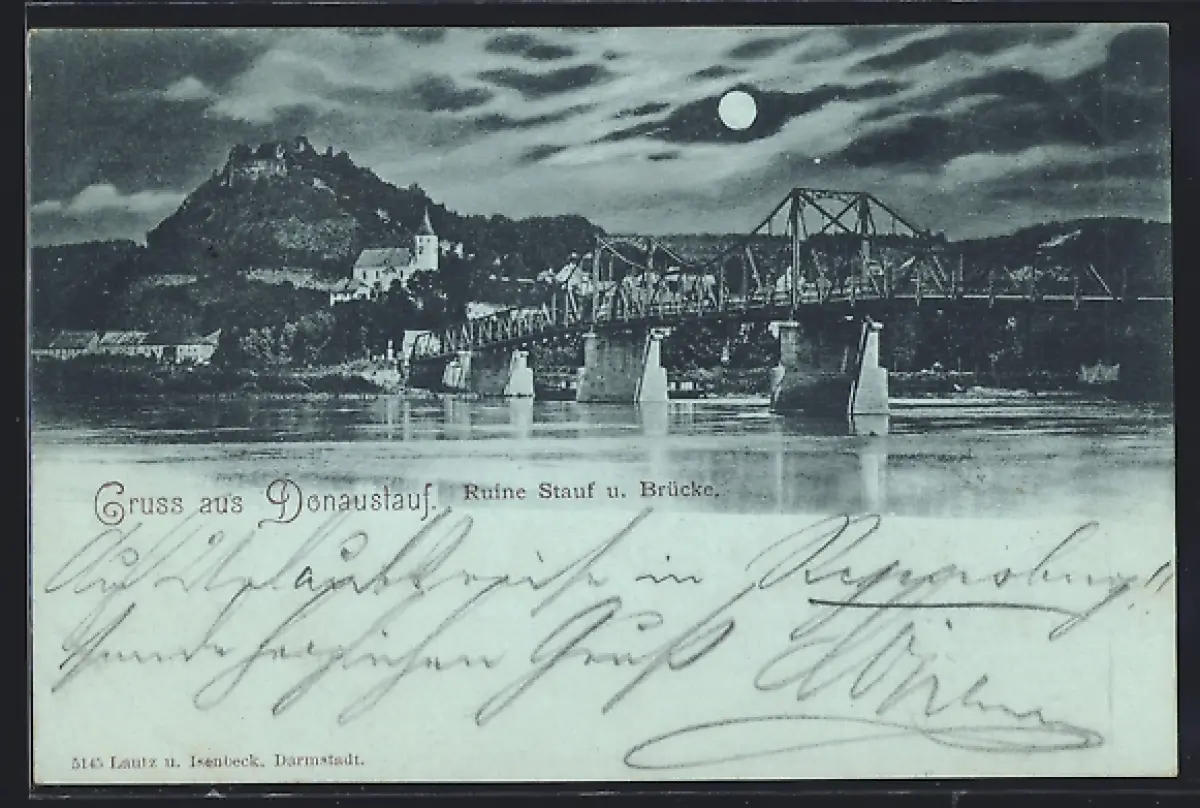 Gruss aus Donaustauf. Ruine Stauf u. Brücke.
Auf Urlaubsreise in Regensburg!!
Sende herzlichen Gruß
5145 Lautz u. Isenbeck, Darmstadt.